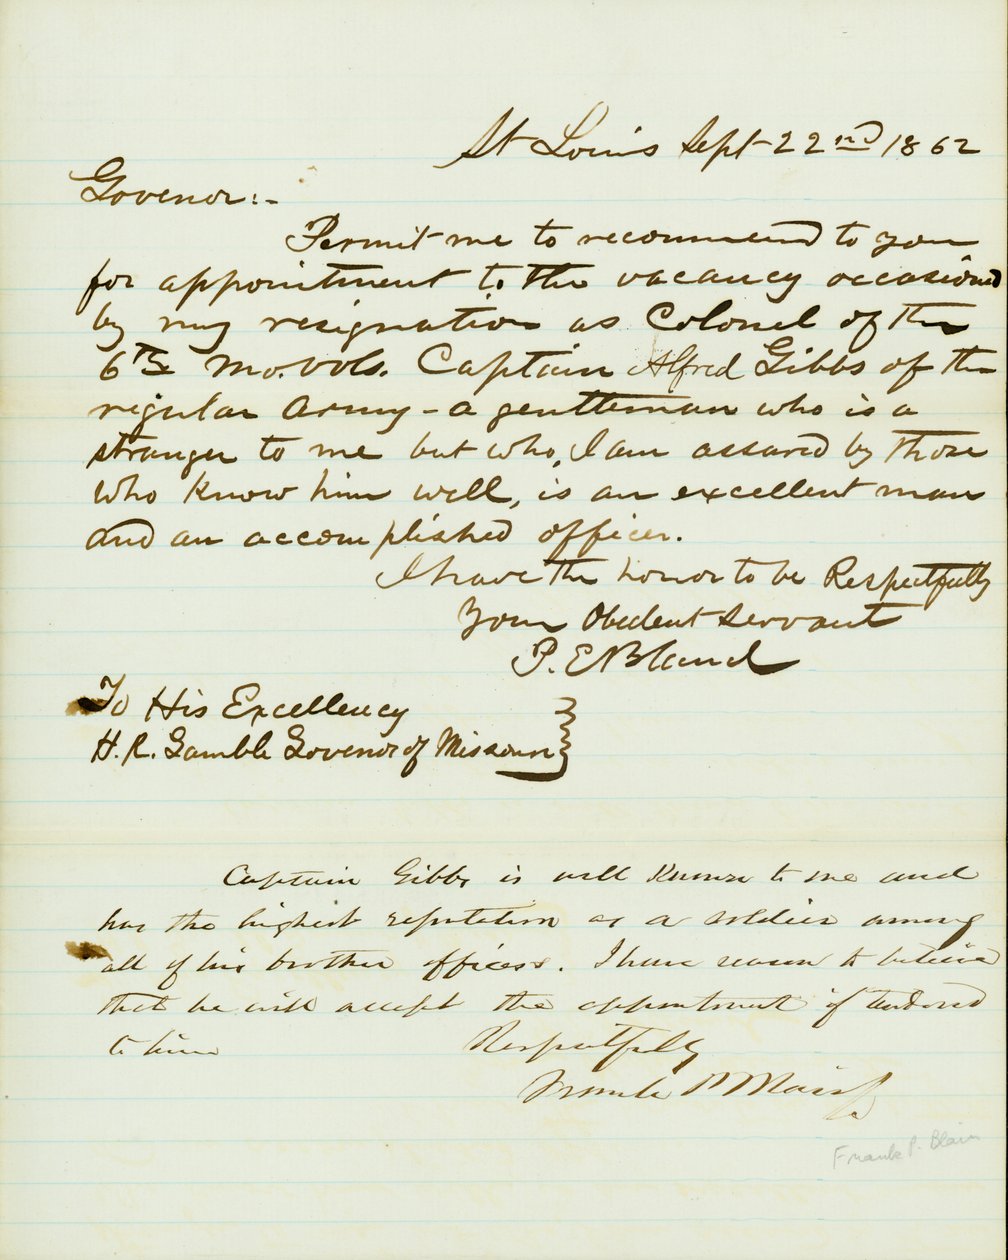 St Louis Sept 22nd 1862
Govenor:-
Permit me to recommend to you
for appointment to the vacancy occasioned
by my resignation as Colonel of the
6th Mo. Vols. Captain Alfred Gibbs of the
regular Army - a gentleman who is a
stranger to me but who, I am assured by those
who know him well, is an excellent man
and an accomplished officer.
I have the honor to be Respectfully
Your Obedient servant
P. E Bland
To His Excellency
H. R. Gamble Govenor of Missouri
Captain Gibbs is well known to me and
has the highest reputation as a soldier among
all of his brother officers. I have reason to believe
that he will accept the appointment if tendered
to him
Respectfully
Frank P Blair
Frank P. Blair